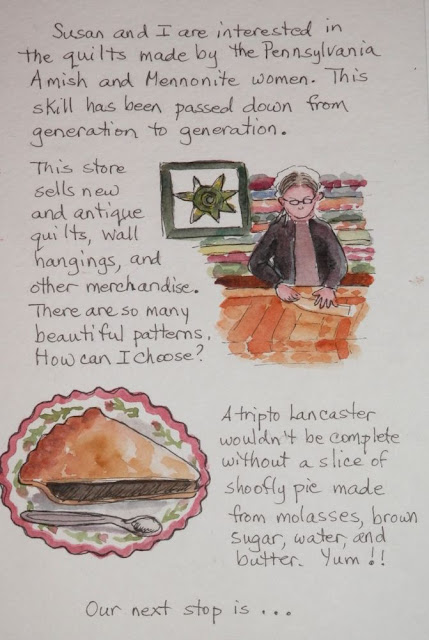 Susan and I are interested in
the quilts made by the Pennsylvania
Amish and Mennonite women. This
skill has been passed down from
generation to generation.
This store
sells new
and antique
quilts, wall
hangings, and
other merchandise.
There are so many
beautiful patterns.
How can I choose?
A trip to Lancaster
wouldn't be complete
without a slice of
shoofly pie made
from molasses, brown
sugar, water, and
butter. Yum!!
Our next stop is...